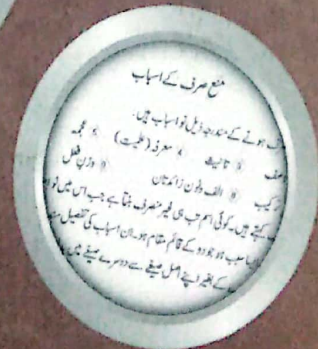 منع صرف کے اسباب
ہونے کے مندرجہ ذیل نو اسباب ہیں۔
وصف تانیث معرفہ (علمیت) عجمہ
ترکیب الف ونون زائدتان وزن فعل
کہتے ہیں۔ کوئی اسم تب ہی غیر منصرف بنتا ہے جب اس میں نو
سبب ہو جو دو کے قائم مقام ہو۔ ان اسباب کی تفصیل
کے بغیر اپنے اصل صیغے سے دوسرے صیغے میں